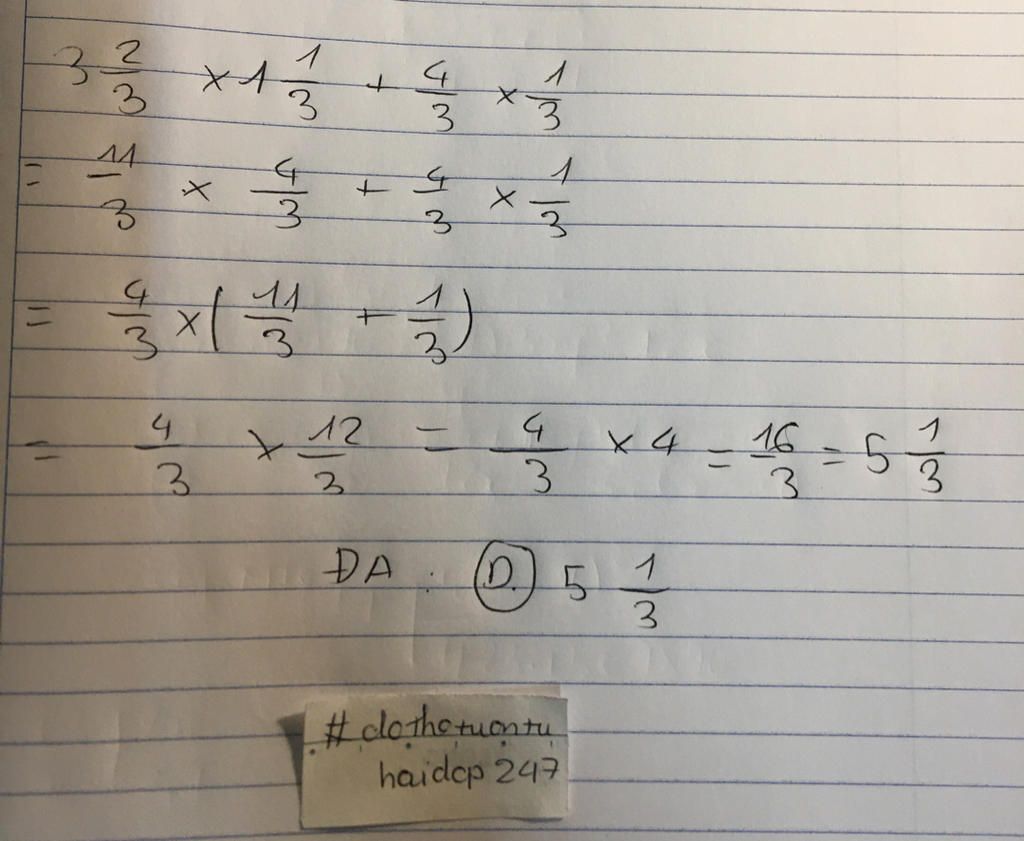 3 2/3 × 1 1/3 + 4/3 × 1/3
= 11/3 × 4/3 + 4/3 × 1/3
= 4/3 × ( 11/3 + 1/3 )
= 4/3 × 12/3 = 4/3 × 4 = 16/3 = 5 1/3
ĐA : D. 5 1/3
# dothotuontu
haidcp 247